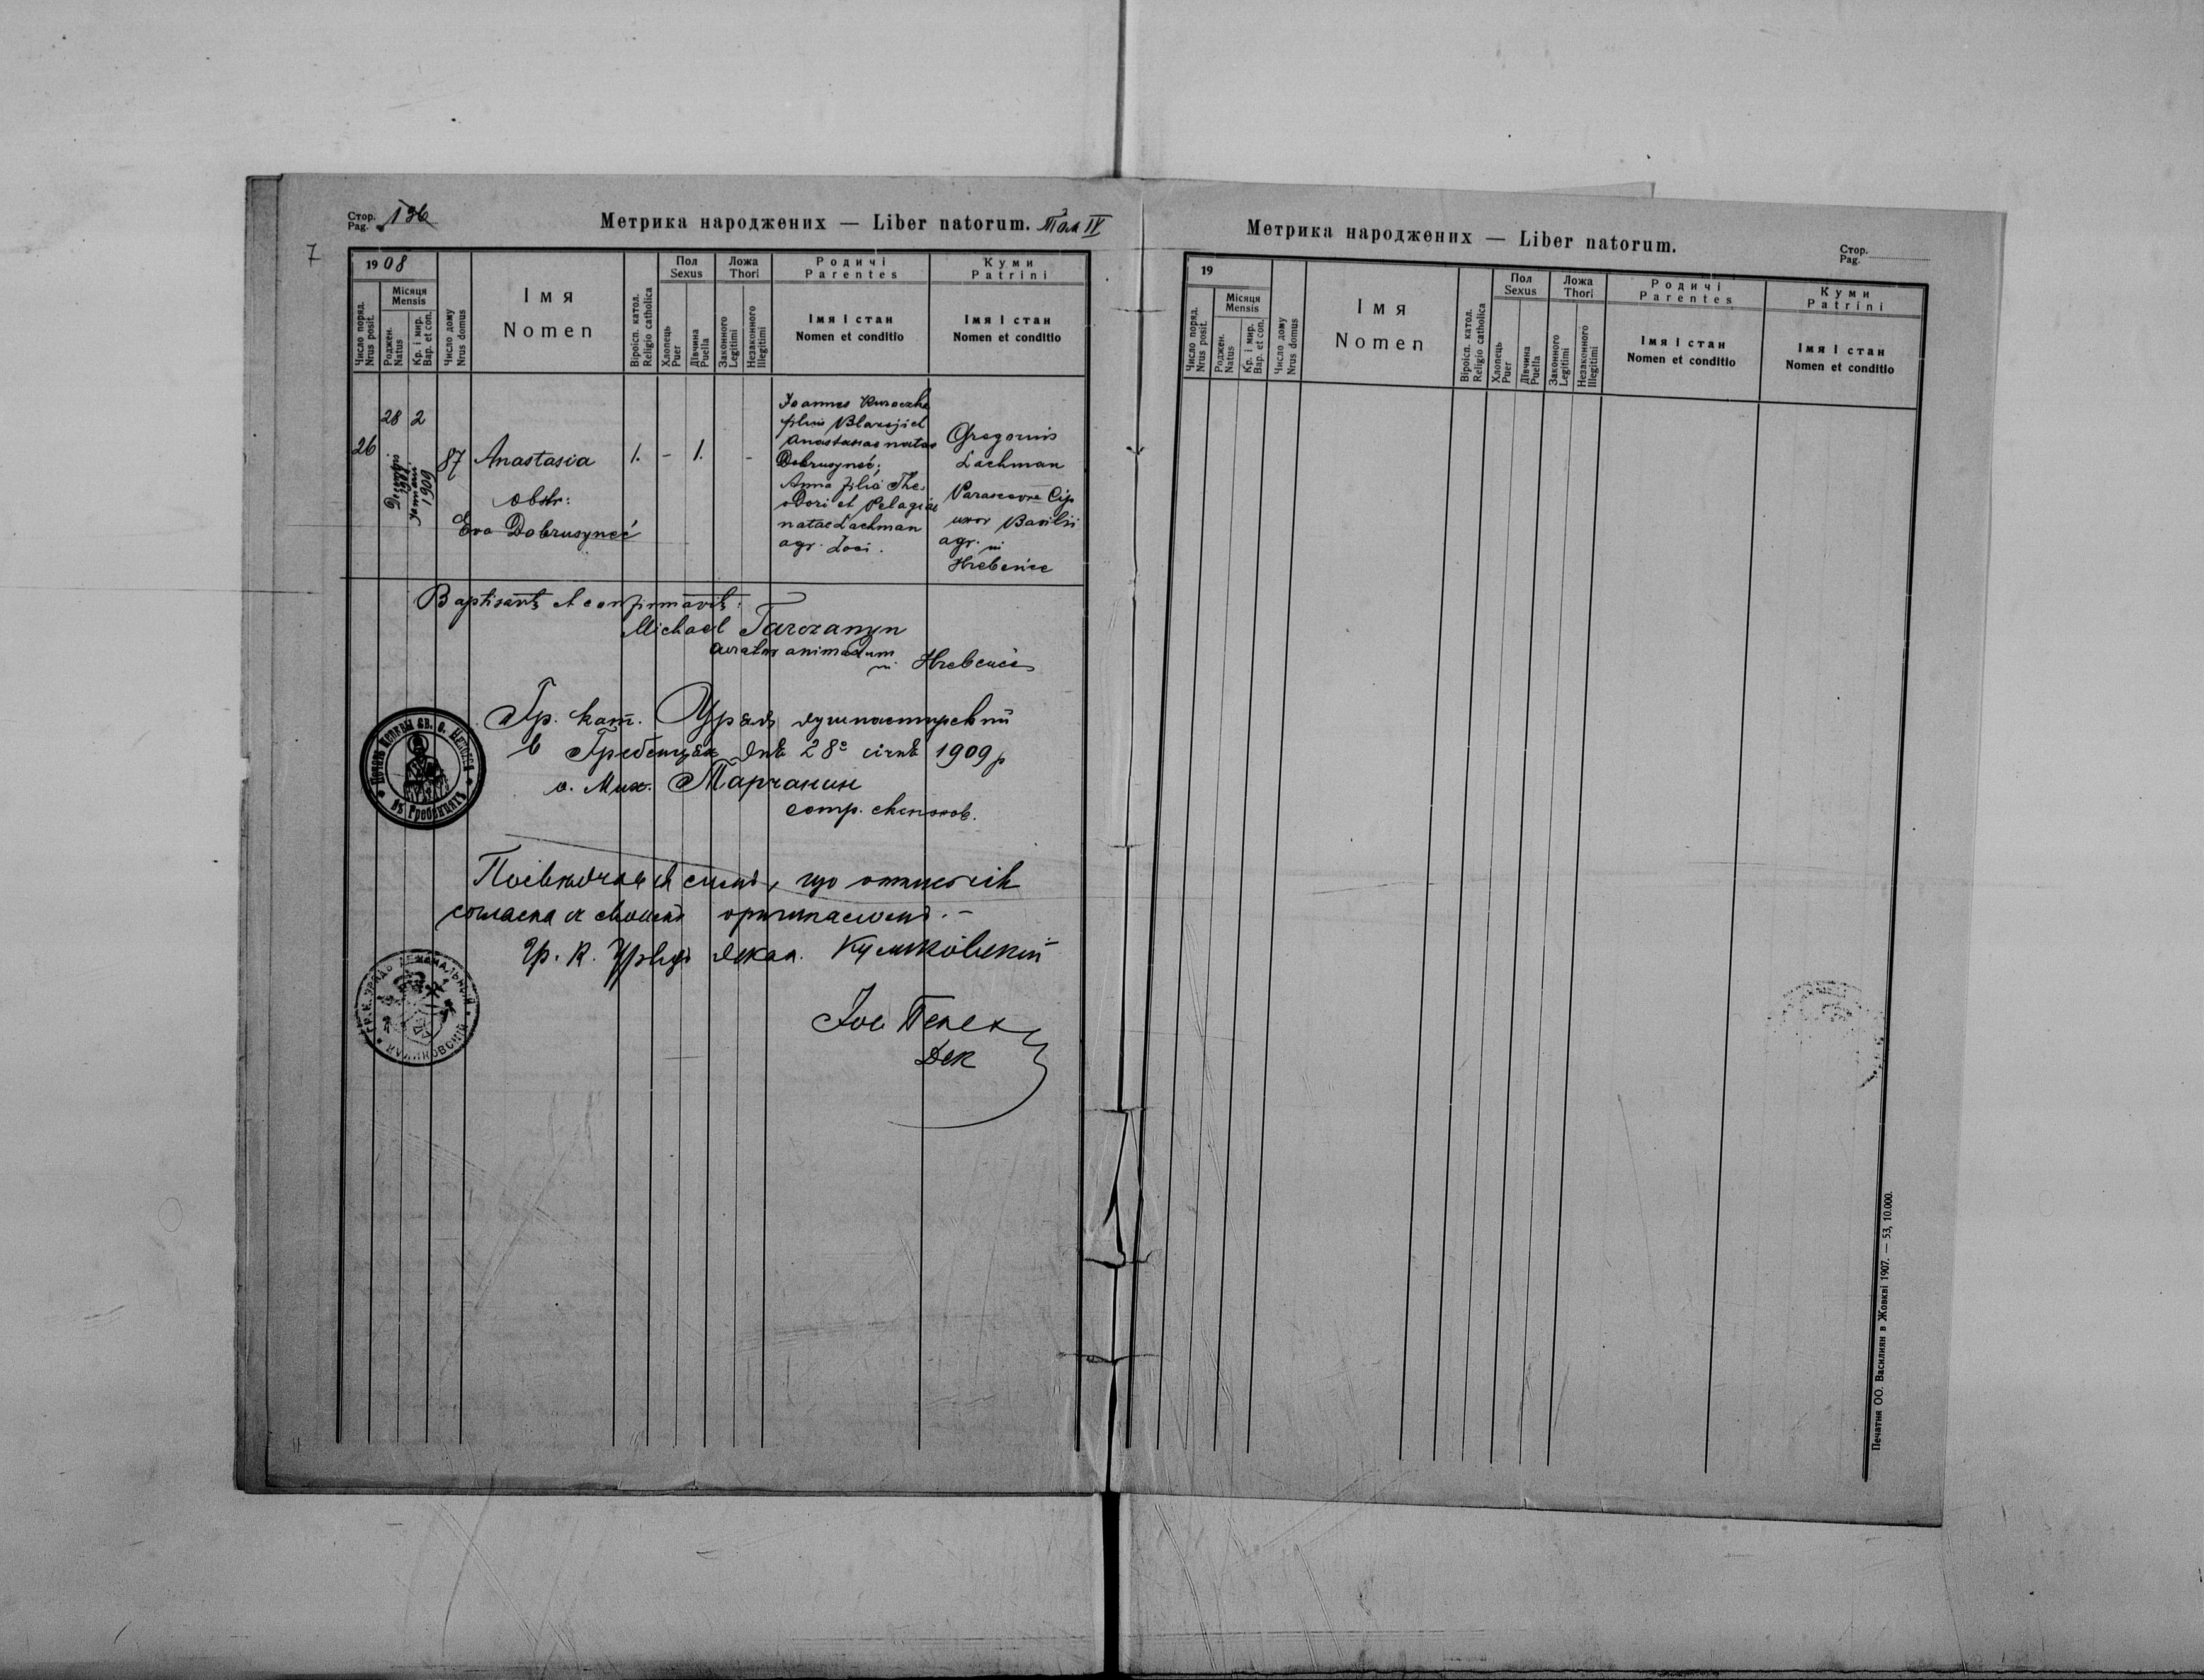 Стор. Pag. 136
Метрика народжених — Liber natorum. Том IV
7
1908
Число поряд. Nrus posit.
Місяця Mensis
Роджен. Natus
Кр. і мир. Bap. et con.
Число дому Nrus domus
Імя
Nomen
Віроісп. катол. Religio catholica
Пол Sexus
Хлопець Puer
Дївчина Puella
Ложа Thori
Законного Legitimi
Незаконного Illegitimi
Родичі Parentes
Імя і стан
Nomen et conditio
Куми Patrini
Імя і стан
Nomen et conditio
26
28
Decembris 1908
2
Januarii 1909
87
Anastasia
obstr:
Eva Dobrusyneć
1.
-
1.
-
Joannes
filius Blasii et
Anastasiae natae
Dobrusyneć;
Anna filia The-
odori et Pelagiae
natae Lachman
agr. Loci.
Gregorius
Lachman
Parascevia Cip
uxor Basilii
agr. in
Hrebeńce
Baptisavit et confirmavit:
Michael Tarczanyn
curator animarum
in Hrebeńce
Гр. кат. Уряд душпастирский
в Гребенцях дня 28го січня 1909 р
о. Мих. Тарчанин
сотр.
Печать Церквы св. о. Николая въ Гребѣнцяхъ
що
оригиналом.-
Гр. к. декан. Куликівский
Дек
Гр. К. Урядъ Деканальный Куликовский
Метрика народжених — Liber natorum.
Стор. Pag.
19
Число поряд. Nrus posit.
Місяця Mensis
Роджен. Natus
Кр. і мир. Bap. et con.
Число дому Nrus domus
Імя
Nomen
Віроісп. катол. Religio catholica
Пол Sexus
Хлопець Puer
Дївчина Puella
Ложа Thori
Законного Legitimi
Незаконного Illegitimi
Родичі Parentes
Імя і стан
Nomen et conditio
Куми Patrini
Імя і стан
Nomen et conditio
Печатня ОО. Василиян в Жовкві 1907. — 53, 10.000.